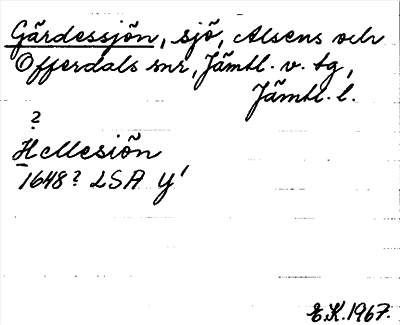 Gärdessjön, sjö, Alsens och
Offerdals snr, Jämtl. v. tg,
Jämtl. l.
?
Hellesiön
1648? LSA Y'
E.K. 1967.